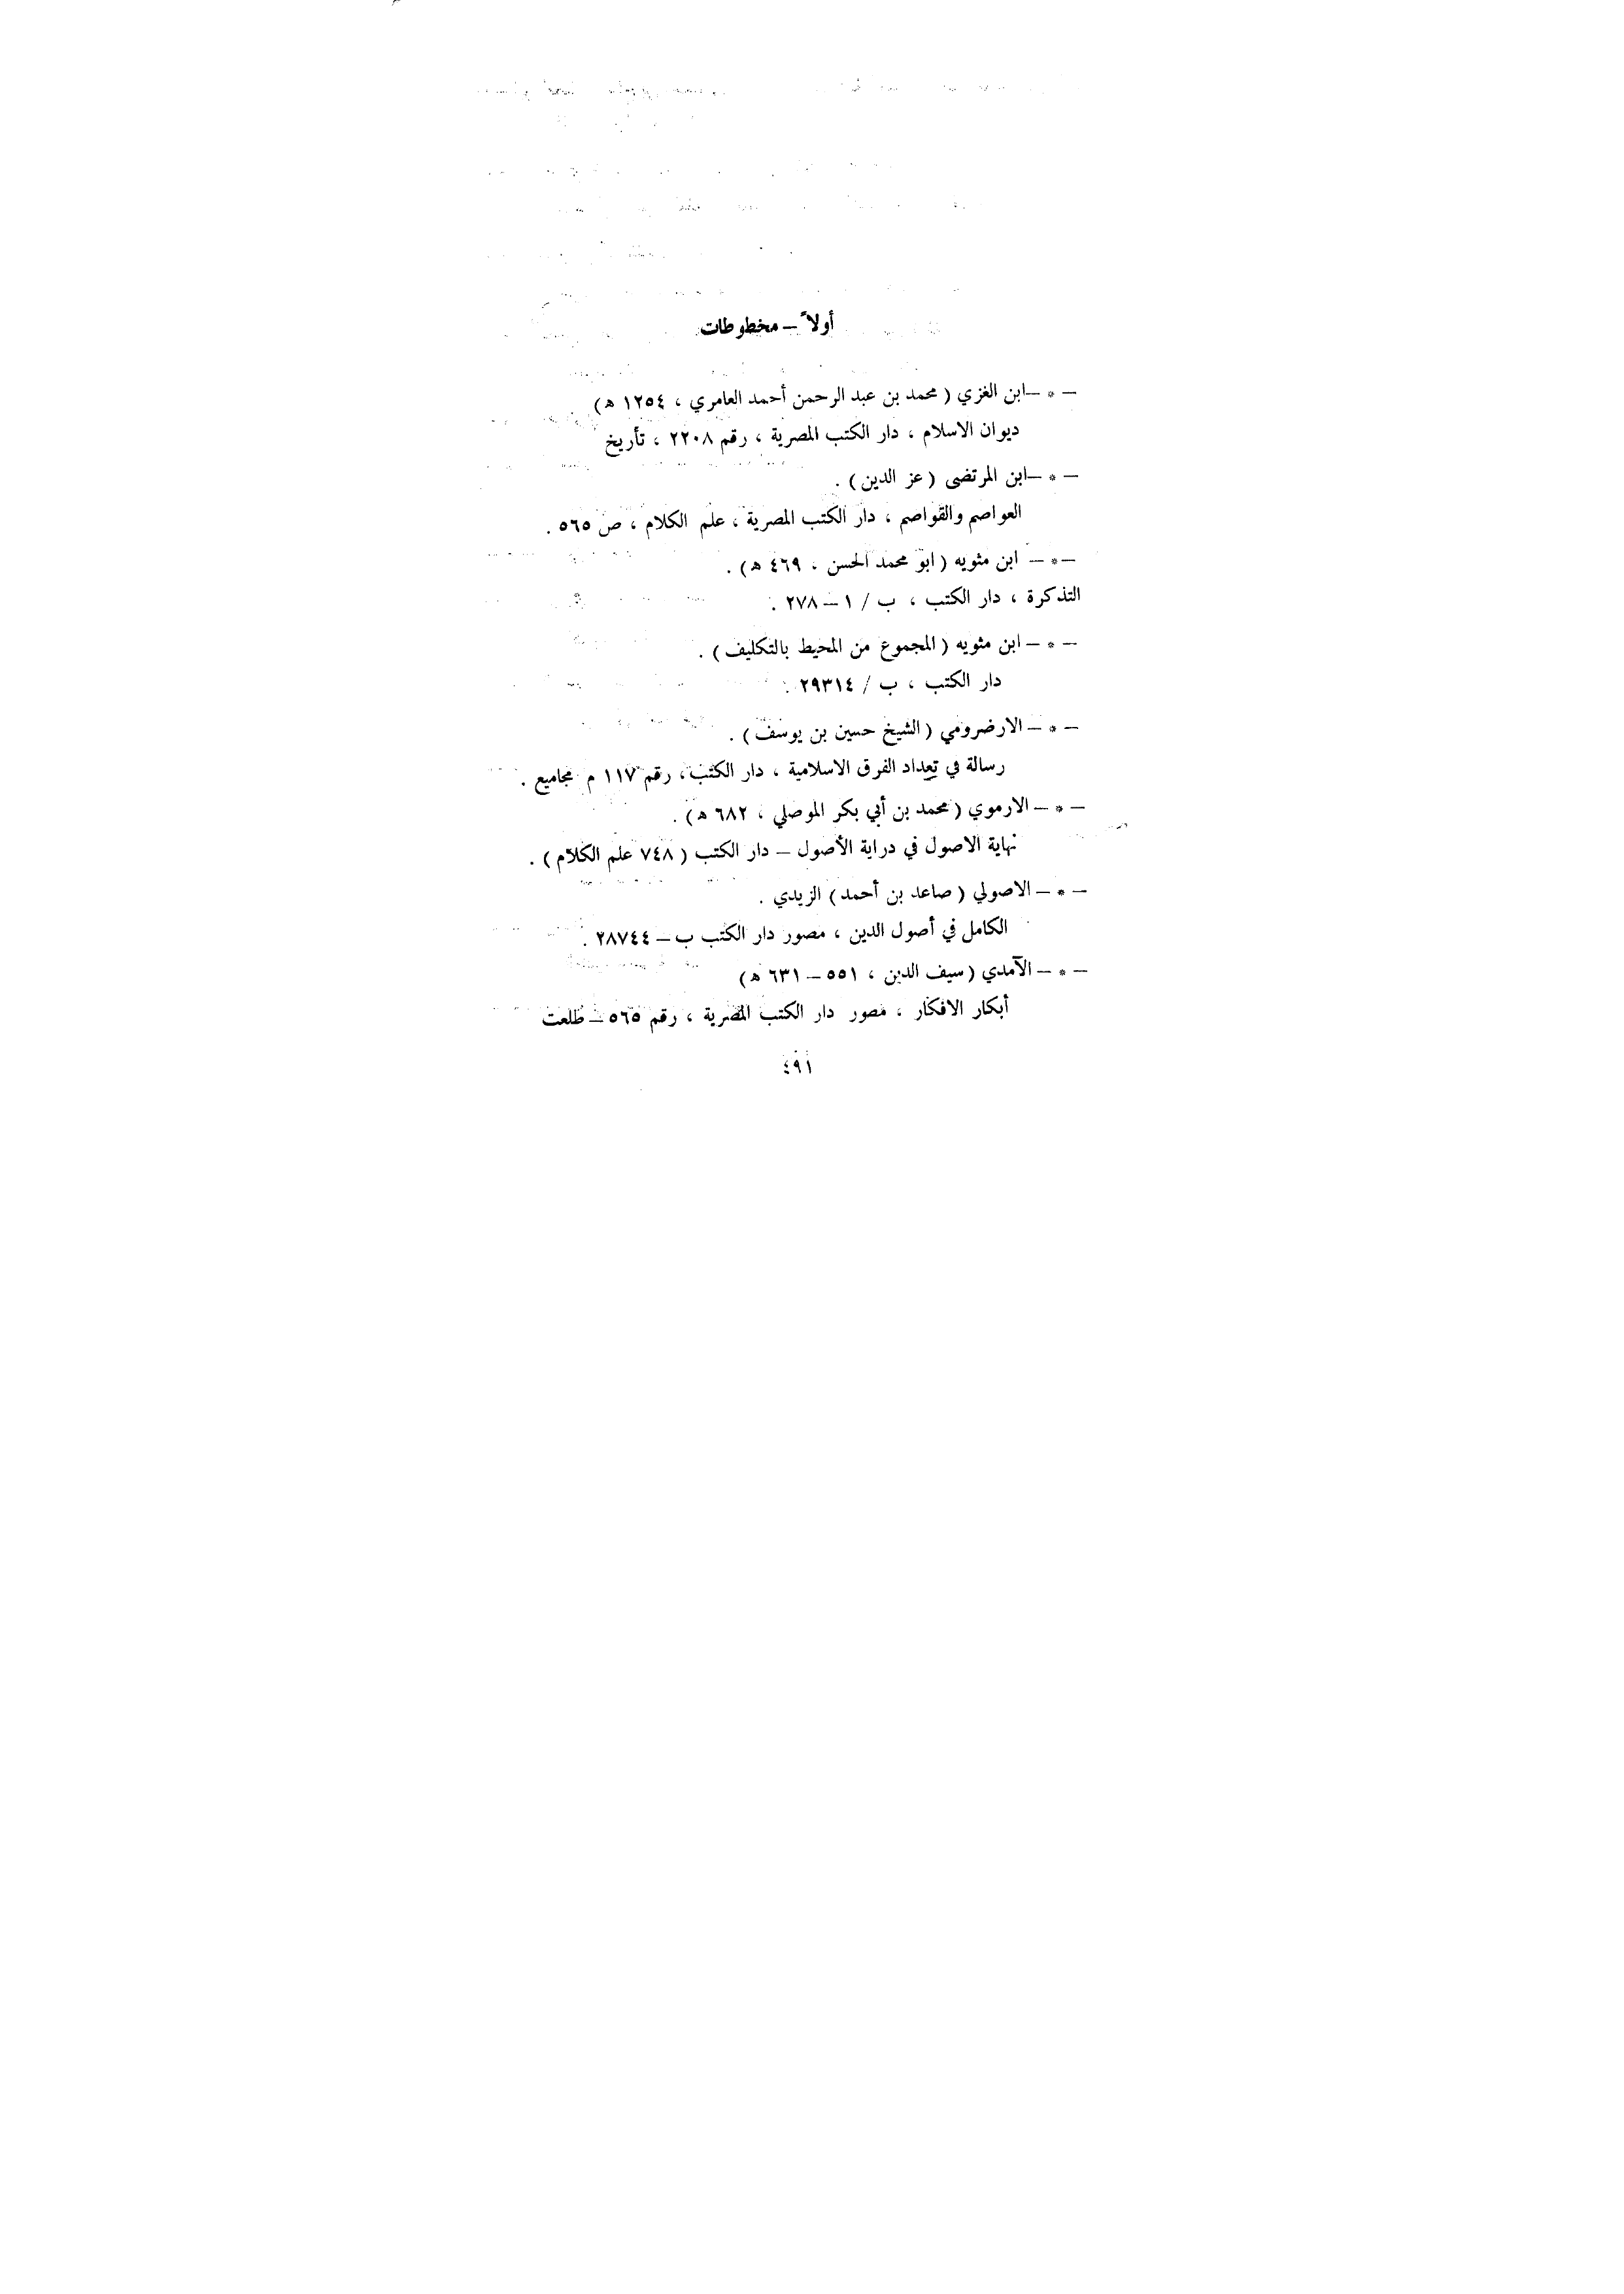 أولاً – مخطوطات
– * – ابن الغزي ( محمد بن عبد الرحمن أحمد العامري ، ١٢٥٤ ه )
ديوان الاسلام ، دار الكتب المصرية ، رقم ٢٢٠٨ ، تأريخ
– * – ابن المرتضى ( عز الدين ) .
العواصم والقواصم ، دار الكتب المصرية ، علم الكلام ، ص ٥٦٥ .
– * – ابن مثويه ( ابو محمد الحسن ، ٤٦٩ ه ) .
التذكرة ، دار الكتب ، ب / ١ – ٢٧٨ .
– * – ابن مثويه ( المجموع من المحيط بالتكليف ) .
دار الكتب ، ب / ٢٩٣١٤ .
– * – الارضرومي ( الشيخ حسين بن يوسف ) .
رسالة في تعداد الفرق الاسلامية ، دار الكتب ، رقم ١١٧ م مجاميع .
– * – الارموي ( محمد بن أبي بكر الموصلي ، ٦٨٢ ه ) .
نهاية الاصول في دراية الأصول – دار الكتب ( ٧٤٨ علم الكلام ) .
– * – الاصولي ( صاعد بن أحمد ) الزيدي .
الكامل في أصول الدين ، مصور دار الكتب ب – ٢٨٧٤٤ .
– * – الآمدي ( سيف الدين ، ٥٥١ – ٦٣١ ه )
أبكار الافكار ، مصور دار الكتب المصرية ، رقم ٥٦٥ – طلعت
٤٩١